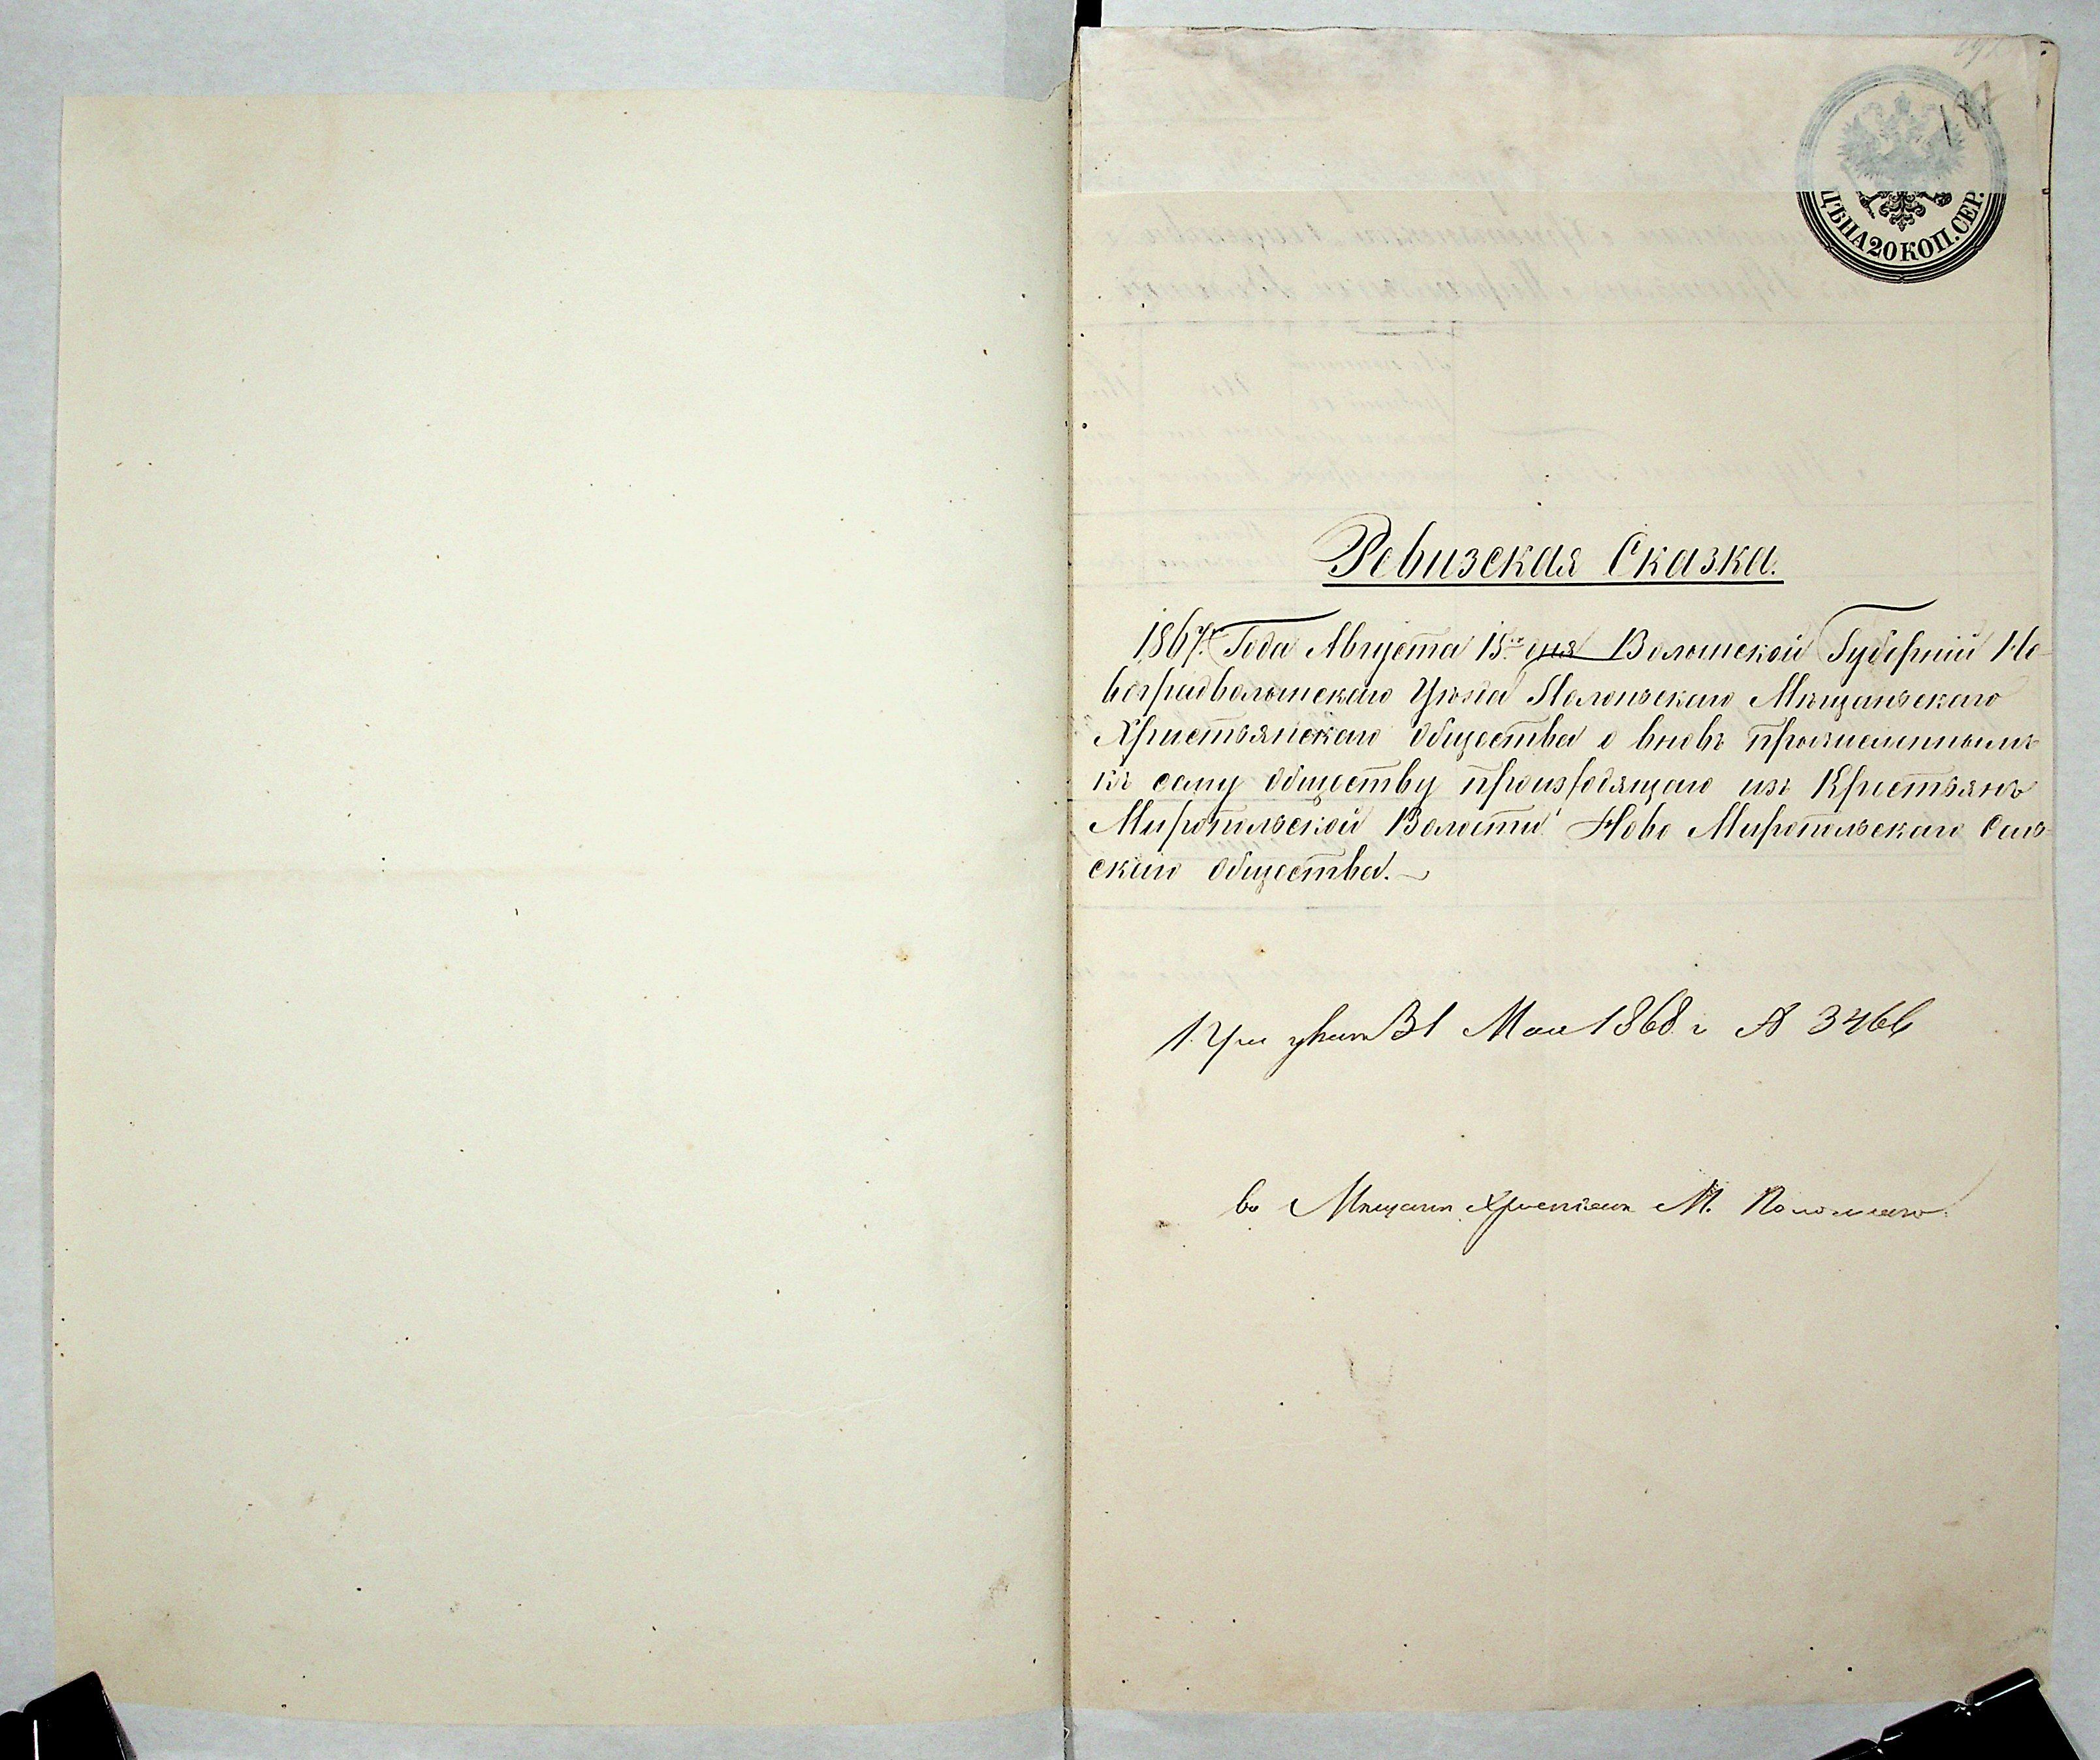 187
ЦѢНА 20 КОП. СЕР.
Ревизская Сказка.
1867. Года Августа 15.го дня Волынской Губерніи Но-
воградволынскаго Уѣзда Полонскаго Мѣщанскаго
Христьянскаго общества о вновь причисленнымъ
къ сему обществу происходящаго изъ Крестьянъ
Миропольской Волости Ново Миропольскаго Сель-
скаго общества.
1868 г № 3466
во Мѣщане Христіане М. Полонаго